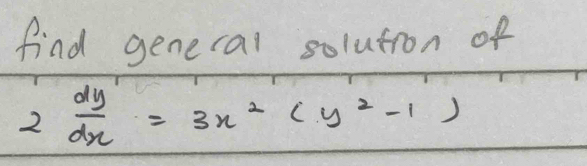 find general solution of
2 dy/dx = 3x² (y² - 1)